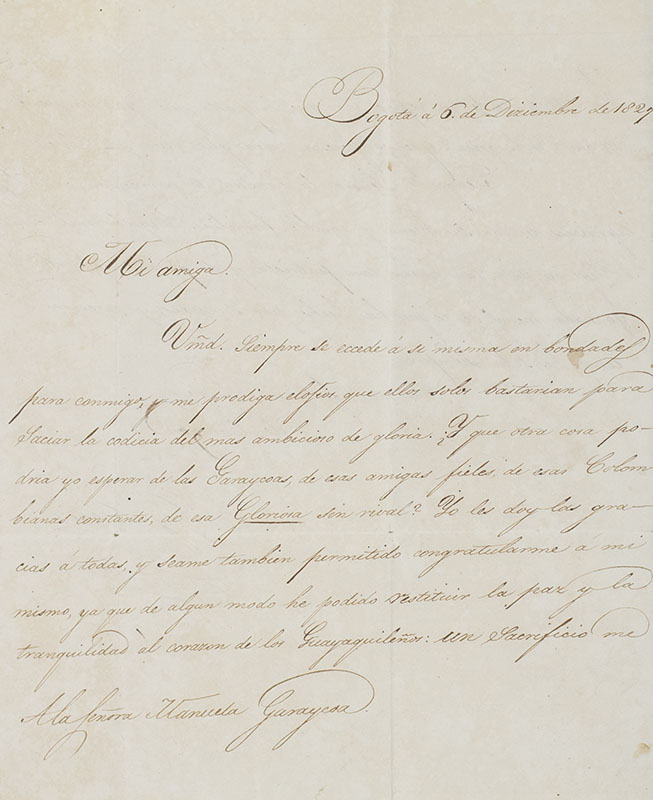 Bogotá á 6. de Diziembre de 1827
Mi amiga.
Vmd. Siempre se eccede á si misma en bondades
para conmigo, y me prodiga elojios que ellos solos bastarian para
Saciar la codicia del mas ambicioso de gloria. ¿Y que otra cosa po-
dria yo esperar de las Garaycoas, de esas amigas fieles, de esas Colom
bianas constantes, de esa Gloriosa sin rival? Yo les doy las gra-
cias á todas, y seame tambien permitido congratularme á mi
mismo, ya que de algun modo he podido restituir la paz y la
tranquilidad al corazon de los Guayaquileños: un Sacrificio me
A la Señora Manuela Garaycoa.